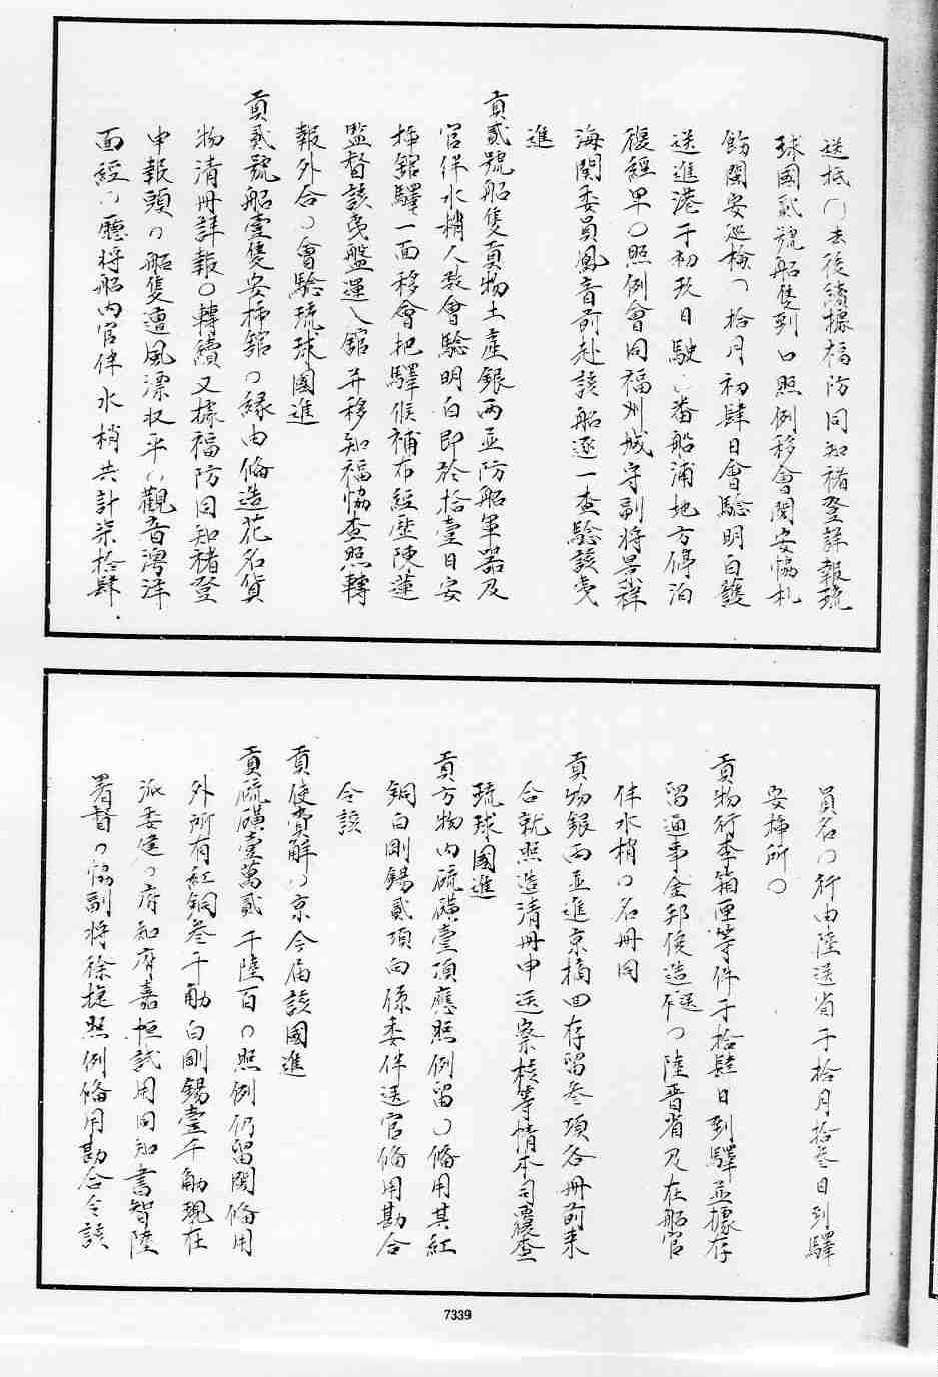 送抵〇去後續據福防同知褚登詳報琉
球國貳號船隻到口照例移會閩安協札
飭閩安巡檢〇拾月初肆日會驗明白護
送進港于初玖日駛〇番船浦地方停泊
復經卑〇照例會同福州城守副將祥
海関委員鳳音前赴該船逐一查驗該夷
進
貢貳號船隻貢物土產銀兩並防船軍器及
官伴水梢人數會驗明白即於拾壹日安
揷館驛一面移會把驛候補布經歷陳蓮
監督該夷盤運入館并移知福協查照轉
報外合〇會驗琉球國進
貢貳號船壹隻安揷館〇緣由備造花名貨
物清冊詳報〇轉續又據福防同知褚登
申報頭〇船隻遭風漂収平〇觀音灣洋
面經〇廳將船內官伴水梢共計柒拾肆
員名〇行由陸送省于拾月拾叁日到驛
安揷所〇
貢物行李箱匣等件于拾肆日到驛並據存
留通事金邦俊造送〇陸晋省及在船官
伴水梢〇名冊同
貢物銀兩並進京摘回存留叁項各冊前来
合就照造清冊申送察核等情本司覆查
琉球國進
貢方物內硫磺壹項應照例留〇備用其紅
銅白剛錫貳項向係委伴送官備用勘合
令該
貢使賫解〇京今届該國進
貢硫磺壹萬貳千陸百〇照例仍留閩備用
外所有紅銅叁千觔白剛錫壹千觔現在
派委建〇府知府嘉恒試用同知書智陸
署督〇協副將徐捷照例備用勘合令該
7339